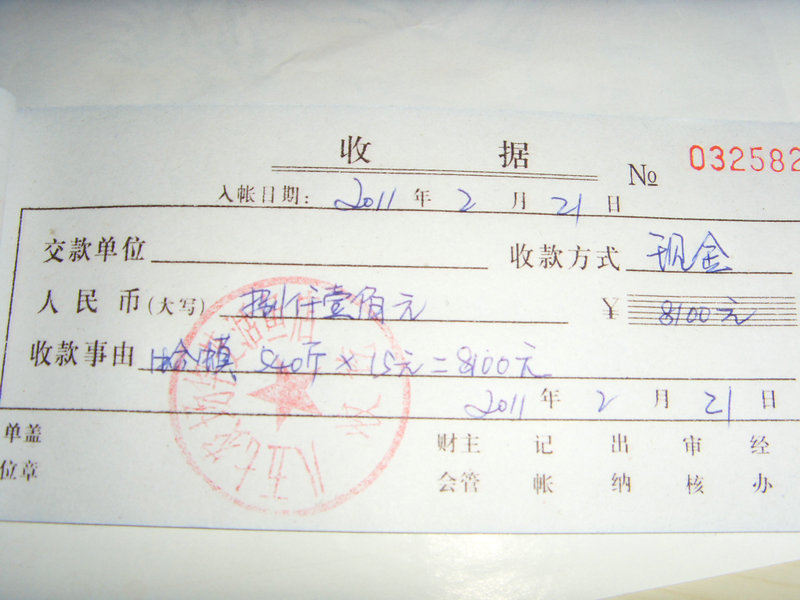 收 据
№ 032582
入帐日期: 2011 年 2 月 21 日
交款单位 收款方式 现金
人民币(大写) 捌仟壹佰元 ¥ 8100元
收款事由 540斤×15元=8100元
2011 年 2 月 21 日
单盖 财主 记 出 审 经
位章 会管 帐 纳 核 办